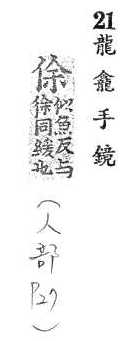 21 龍龕手鏡
俆 似魚反与
徐同緩也
（人部 P27）